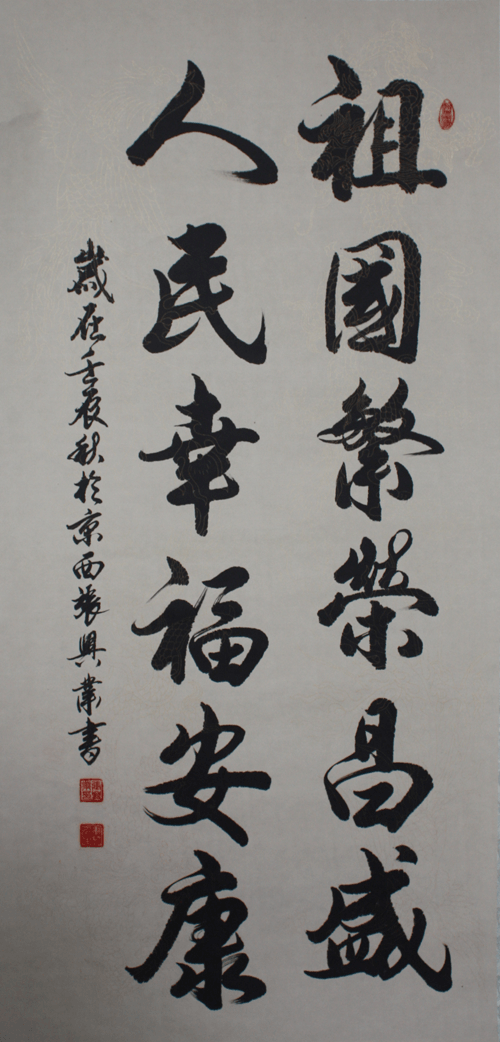 祖國繁榮昌盛
人民幸福安康
歲在壬辰秋於京西張興業書